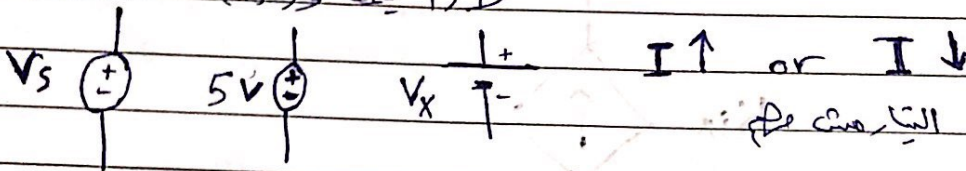 Vs + - 5V + - Vx + - I ↑ or I ↓
التيار مش